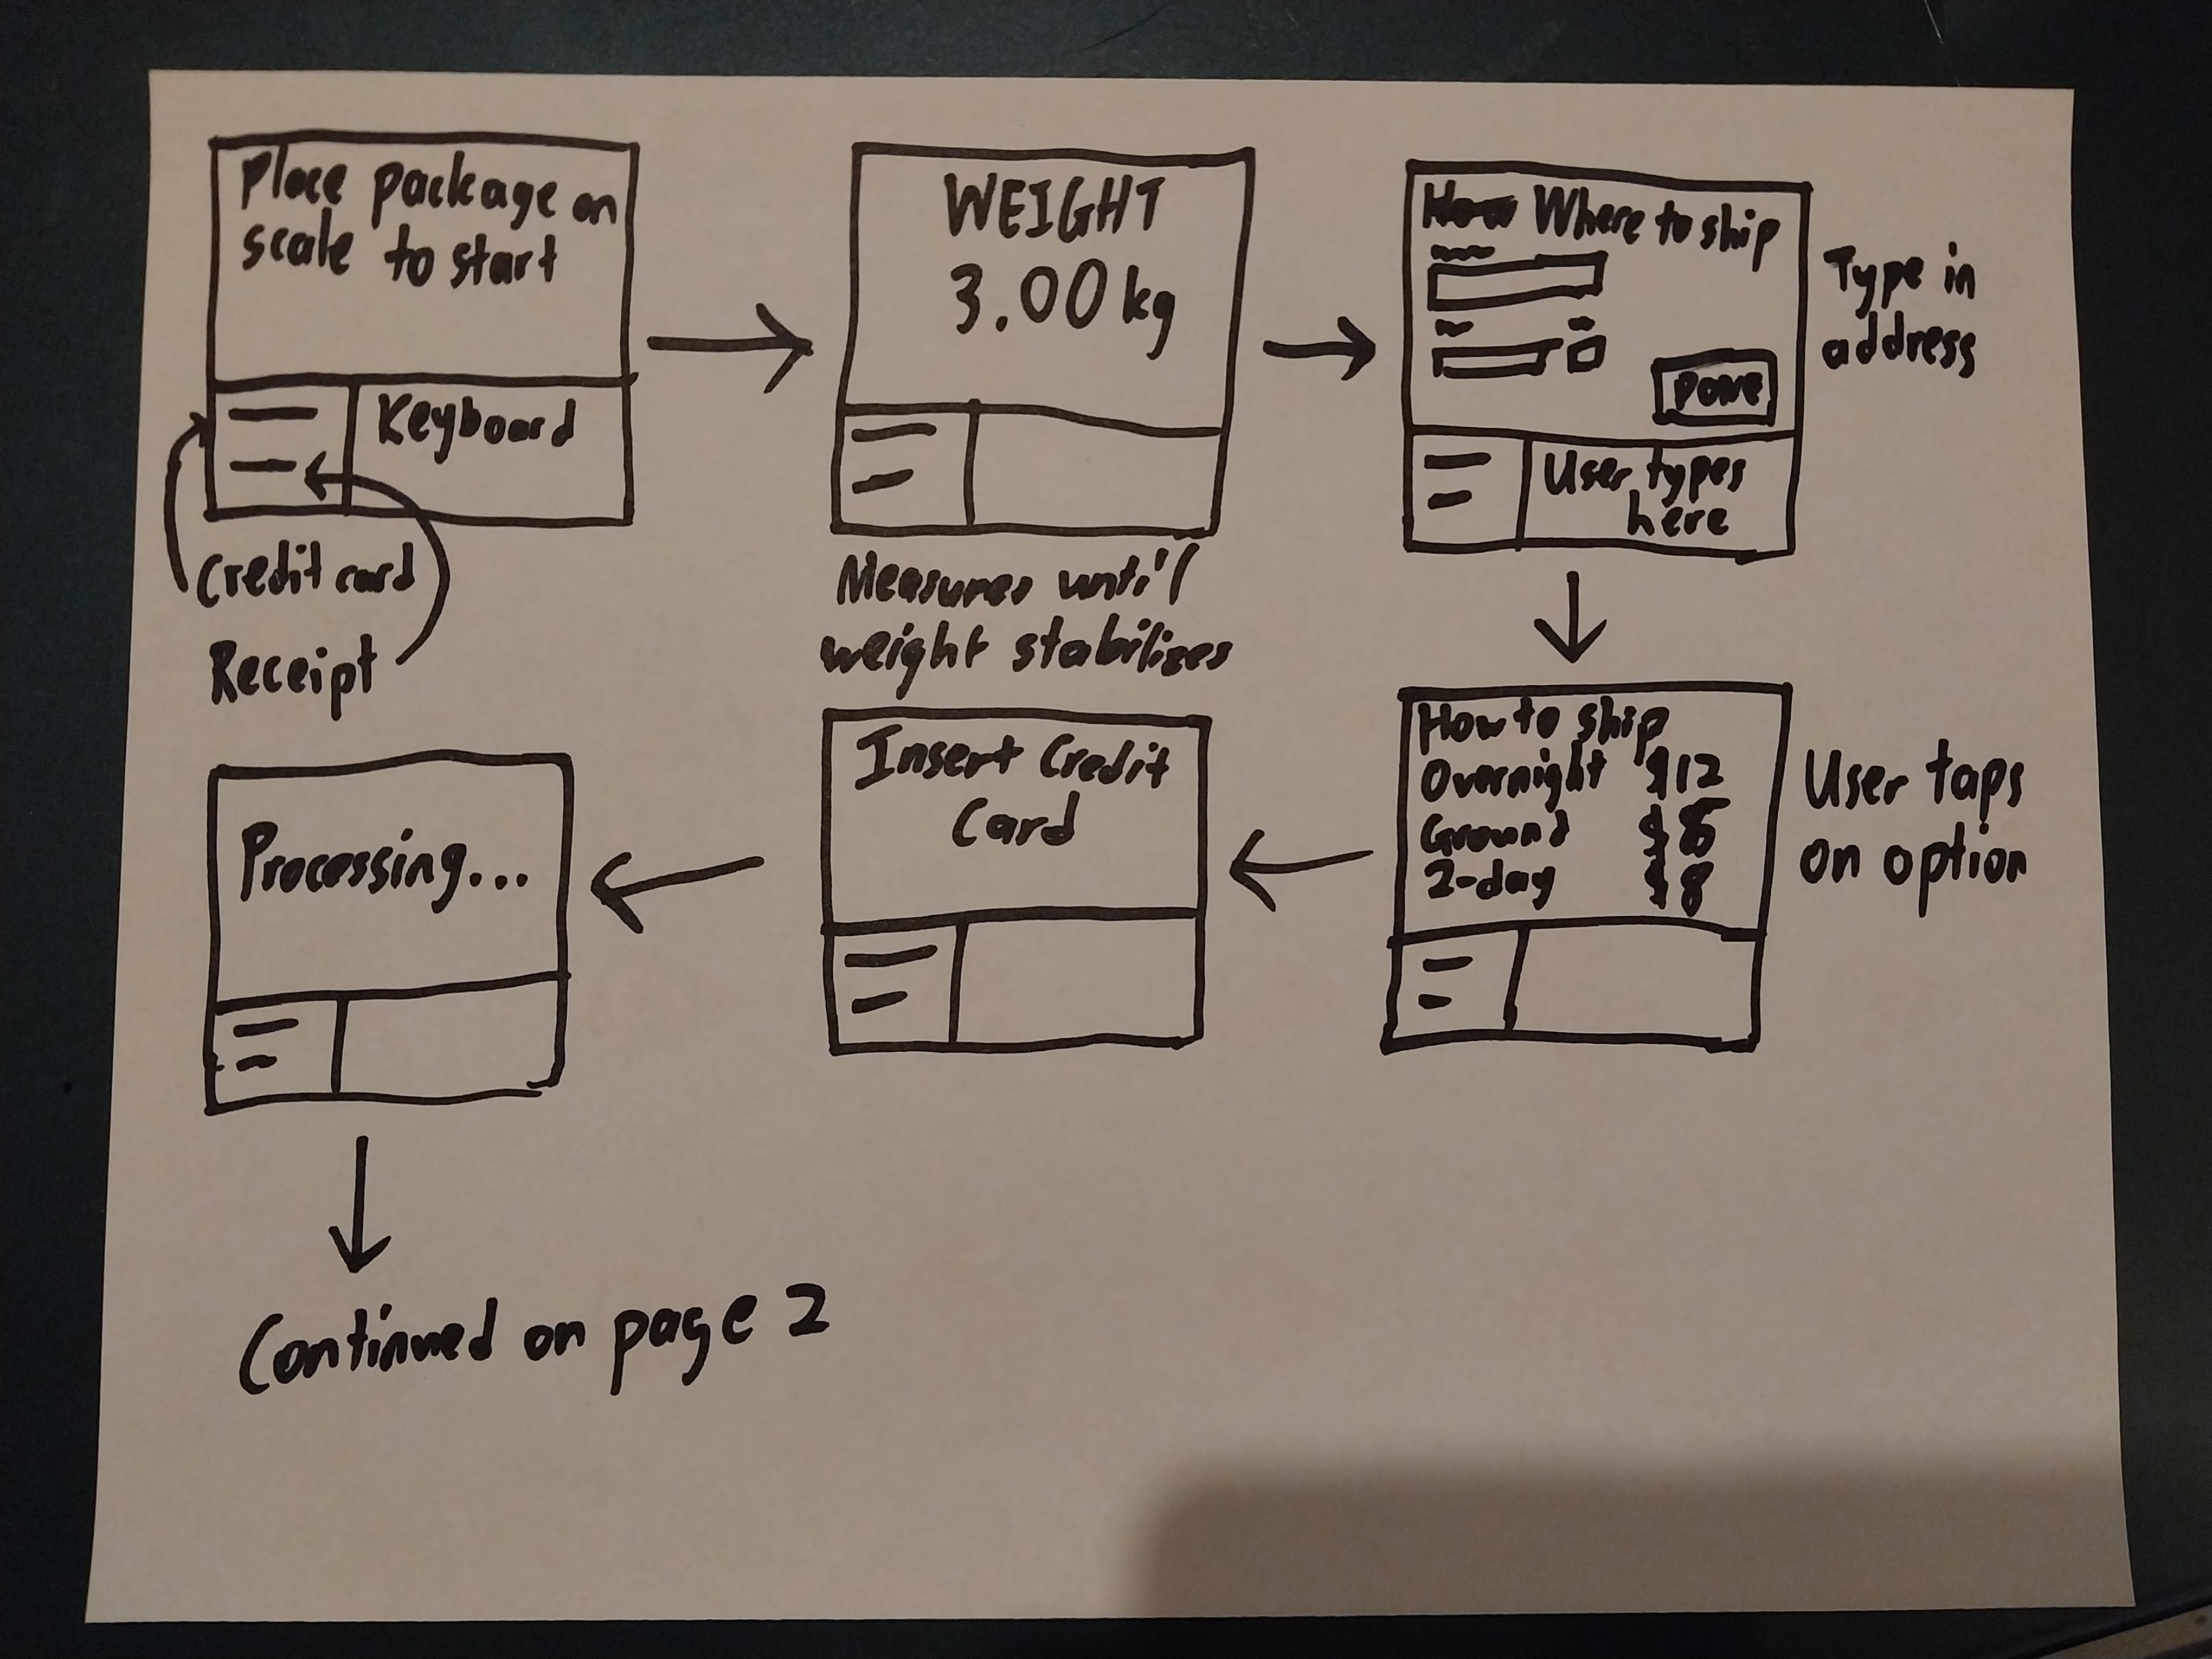 Place Package on
scale to start
Keyboard
Credit card
Receipt
WEIGHT
3.00 kg
Measures until
weight stabilizes
Where to ship
Done
User types
here
Type in
address
How to ship
Overnight $12
Ground $
2-day $8
User taps
on option
Insert Credit
Card
Processing...
Continued on page 2